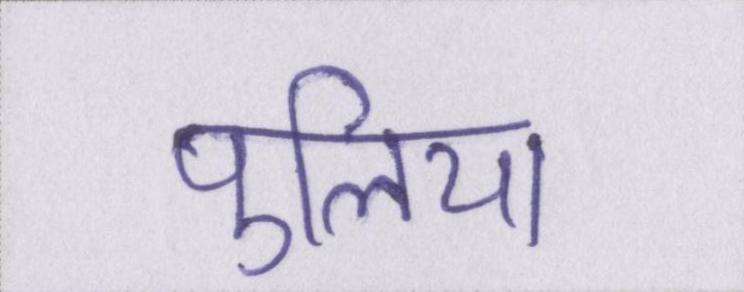 पुलिया